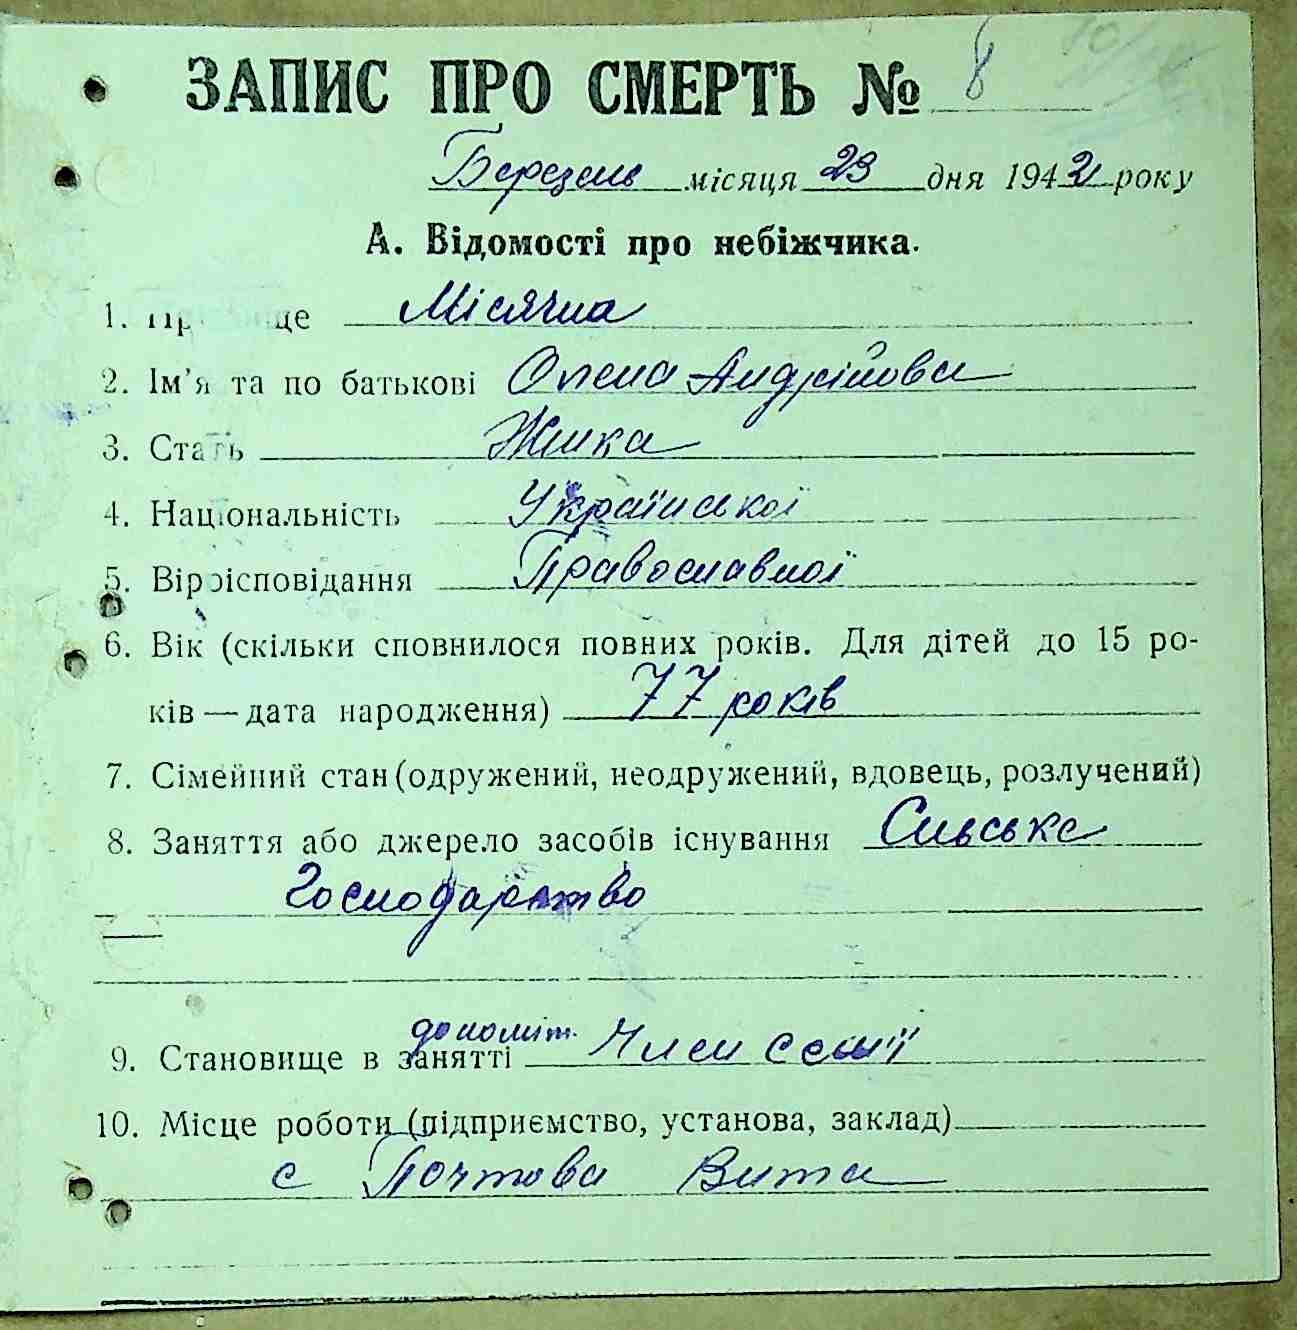 ЗАПИС ПРО СМЕРТЬ № 8
Березень місяця 23 дня 1942 року
А. Відомості про небіжчика.
1. Пр ще Місячна
2. Ім'я та по батькові Олена Андрійовна
3. Стать Жінка
4. Національність Української
5. Віроісповідання Православної
6. Вік (скільки сповнилося повних років. Для дітей до 15 ро-
ків — дата народження) 77 років
7. Сімейний стан (одружений, неодружений, вдовець, розлучений)
8. Заняття або джерело засобів існування Сільське
Господарство
9. Становище в занятті допоміт. Член семії
10. Місце роботи (підприємство, установа, заклад)
с Почтова Вита